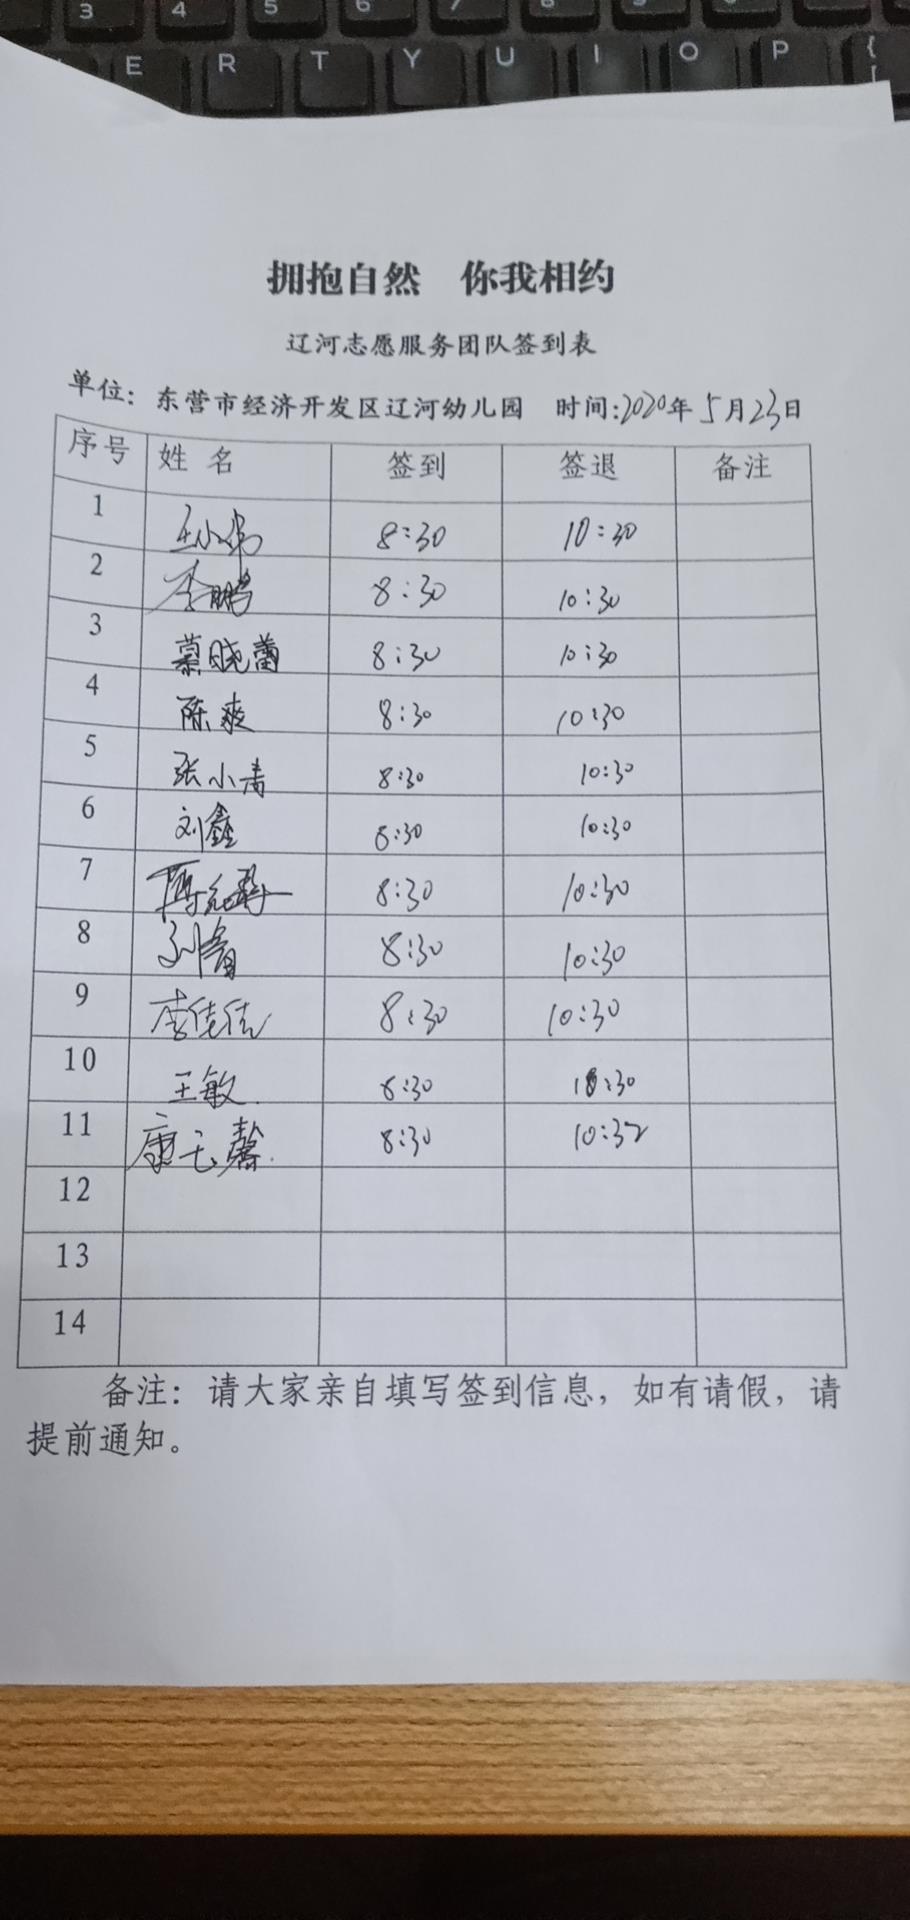 3 4 5 6 7 8 9
E R T Y U I O P {
[
拥抱自然 你我相约
辽河志愿服务团队签到表
单位：东营市经济开发区辽河幼儿园 时间:2020年5月23日
序号 姓名 签到 签退 备注
1 王小弟 8:30 10:30
2 李鹏 8:30 10:30
3 慕晓蕾 8:30 10:30
4 陈爽 8:30 10:30
5 张小青 8:30 10:30
6 刘鑫 8:30 10:30
7 8:30 10:30
8 8:30 10:30
9 李佳佳 8:30 10:30
10 王敏 8:30 10:30
11 康玉馨 8:30 10:32
12
13
14
备注：请大家亲自填写签到信息，如有请假，请
提前通知。